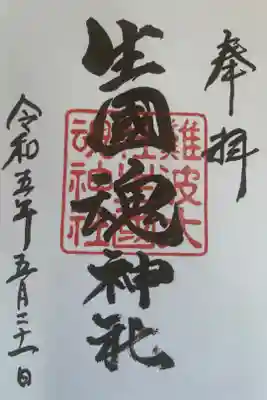 奉拝
生國魂神社
難波大
社生國
魂神社
令和五年五月二十一日